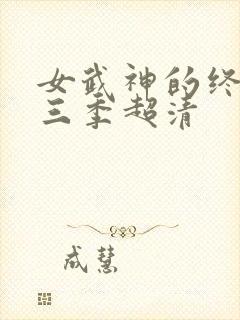 女武神的终
三季超清
成慧